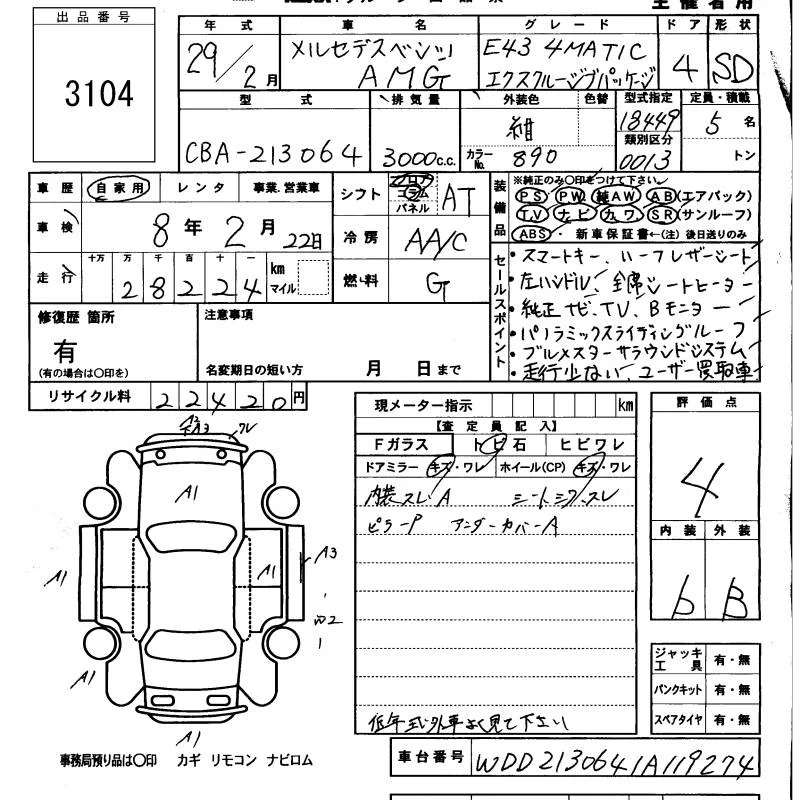 出品番号
3104
年式 車名 グレード ドア 形状
29/2月 メルセデスベンツ AMG E43 4MATIC エクスクルーシブパッケージ 4 SD
型式 排気量 外装色 色替 型式指定 定員・積載
CBA-213064 3000c.c. 紺 18449 5名
カラーNo. 890 類別区分 0013 トン
車歴 自家用 レンタ 事業.営業車
車検 8年 2月 22日
走行 十万 万 千 百 十 一 km マイル
28224
シフト フロア コラム パネル AT
冷房 AA/C
燃料 G
装備品 ※純正のみ〇印をつけて下さい。
PS PW 純AW AB(エアバック)
TV ナビ カワ SR(サンルーフ)
ABS・新車保証書←(注) 後日送りのみ
セールスポイント
・スマートキー、ハーフレザーシート
・左ハンドル、全席シートヒーター
・純正ナビ、TV、Bモニター
・パノラミックスライディングルーフ
・ブルメスターサラウンドシステム
・走行少ない、ユーザー買取車
修復歴 箇所
有
(有の場合は〇印を)
注意事項
名変期日の短い方 月 日まで
リサイクル料 22420円
現メーター指示 km
【査定員記入】
Fガラス トビ石 ヒビワレ
ドアミラー キズ・ワレ ホイール(CP) キズ・ワレ
内装スレ.A シートシワ.スレ
ピラーP アンダーカバーA
低年式外車よく見て下さい
評価点
4
内装 外装
b B
ジャッキ工具 有・無
パンクキット 有・無
スペアタイヤ 有・無
ワレ
A1
A1
A1
A3
A1
A1
事務局預り品は〇印 カギ リモコン ナビロム
車台番号 WDD2130641A119274